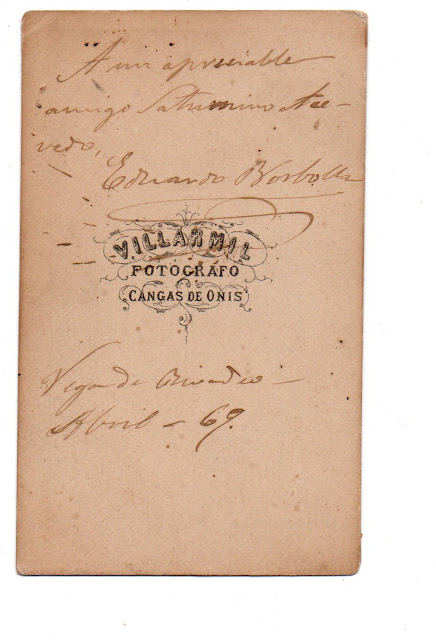 A mi apreciable
amigo Saturnino Ace-
vedo,
Eduardo Borbolla
VILLARMIL
FOTOGRAFO
CANGAS DE ONIS
Vega de Rivadeo -
Abril - 69.